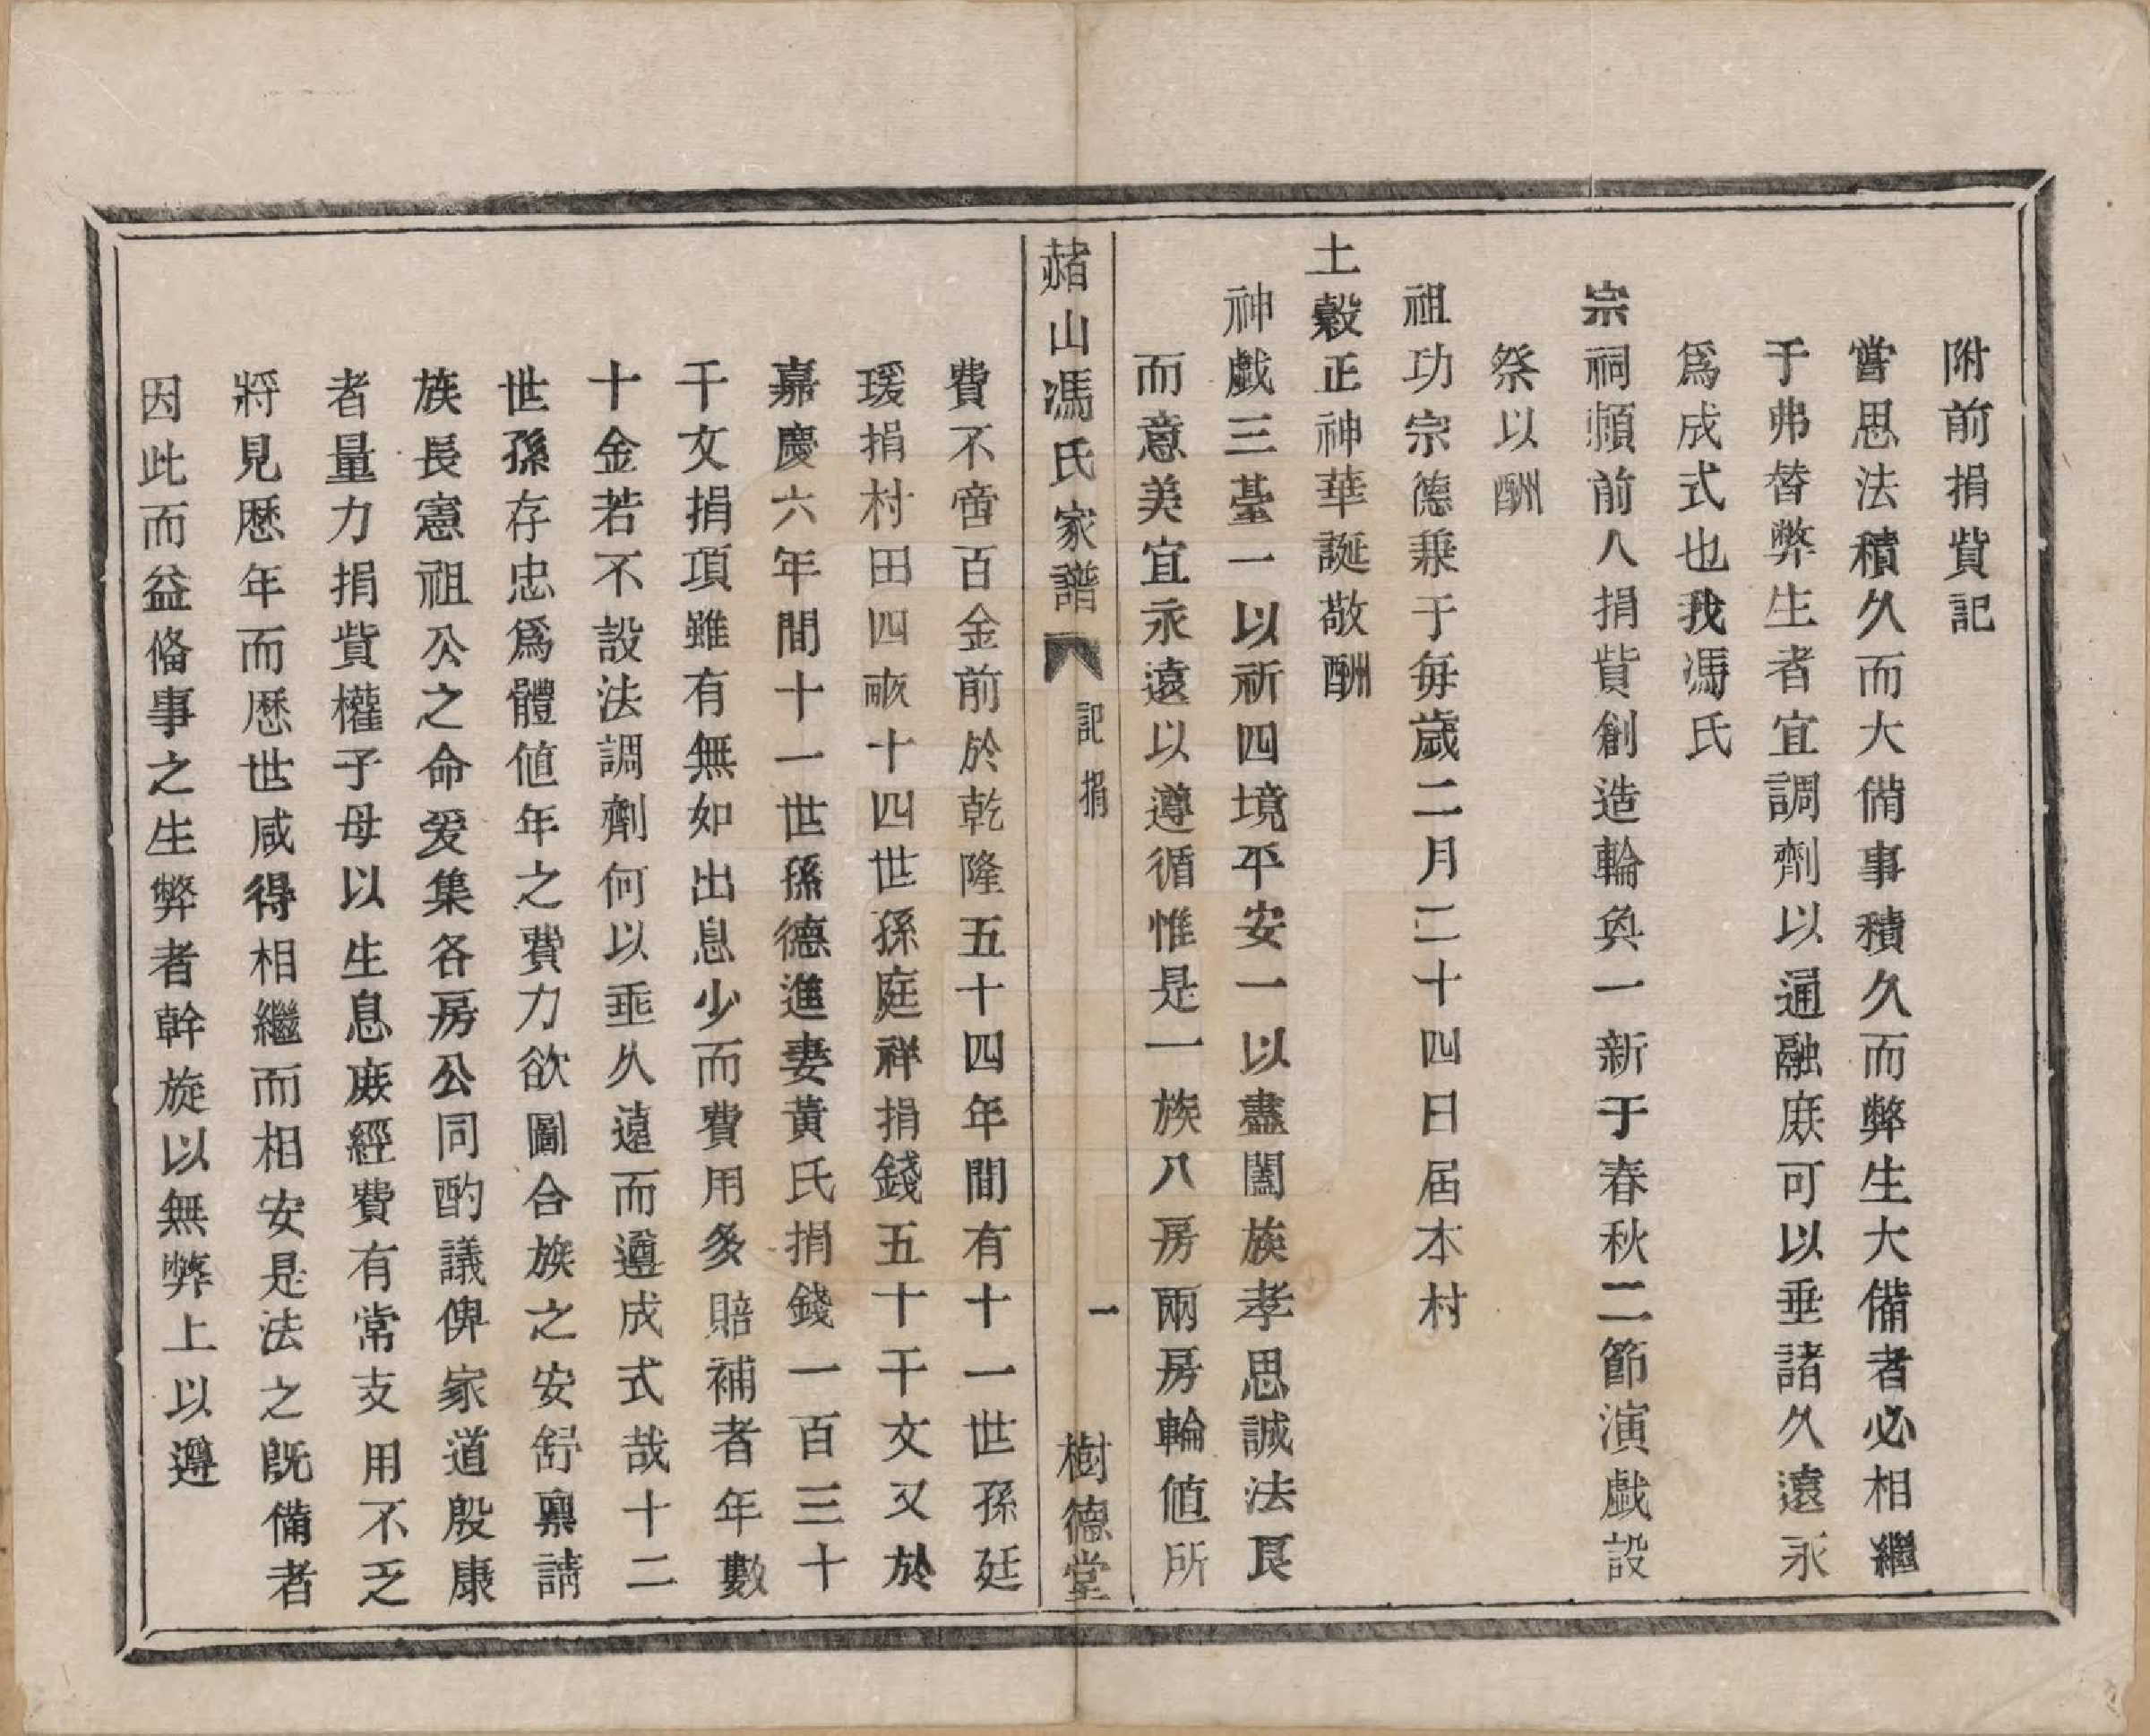 附前捐貲記
嘗思法積久而大備事積久而弊生大備者必相繼
于弗替弊生者宜調劑以通融庶可以垂諸久遠永
爲成式也我馮氏
宗祠頼前人捐貲創造輪奐一新于春秋二節演戲設
祭以酬
祖功宗德兼于每歲二月二十四日届本村
土穀正神華誕敬酬
神戲三臺一以祈四境平安一以盡闔族孝思誠法良
而意美宜永遠以遵循惟是一族八房兩房輪値所
赭山馮氏家譜 記捐 一 樹德堂
費不啻百金前於乾隆五十四年間有十一世孫廷
瑗捐村田四畝十四世孫庭祥捐錢五十千文又於
嘉慶六年間十一世孫德進妻黃氏捐錢一百三十
千文捐項雖有無如出息少而費用多賠補者年數
十金若不設法調劑何以垂久遠而遵成式哉十二
世孫存忠爲體値年之費力欲圖合族之安舒禀請
族長憲祖公之命爰集各房公同酌議俾家道殷康
者量力捐貲權子母以生息庶經費有常支用不乏
將見歷年而歷世咸得相繼而相安是法之旣備者
因此而益備事之生弊者幹旋以無弊上以遵